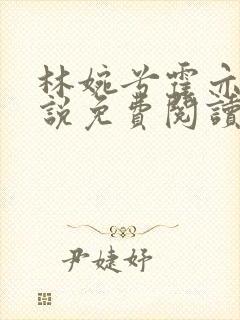 林婉兮霍亦
說免費閱讀
尹婕妤